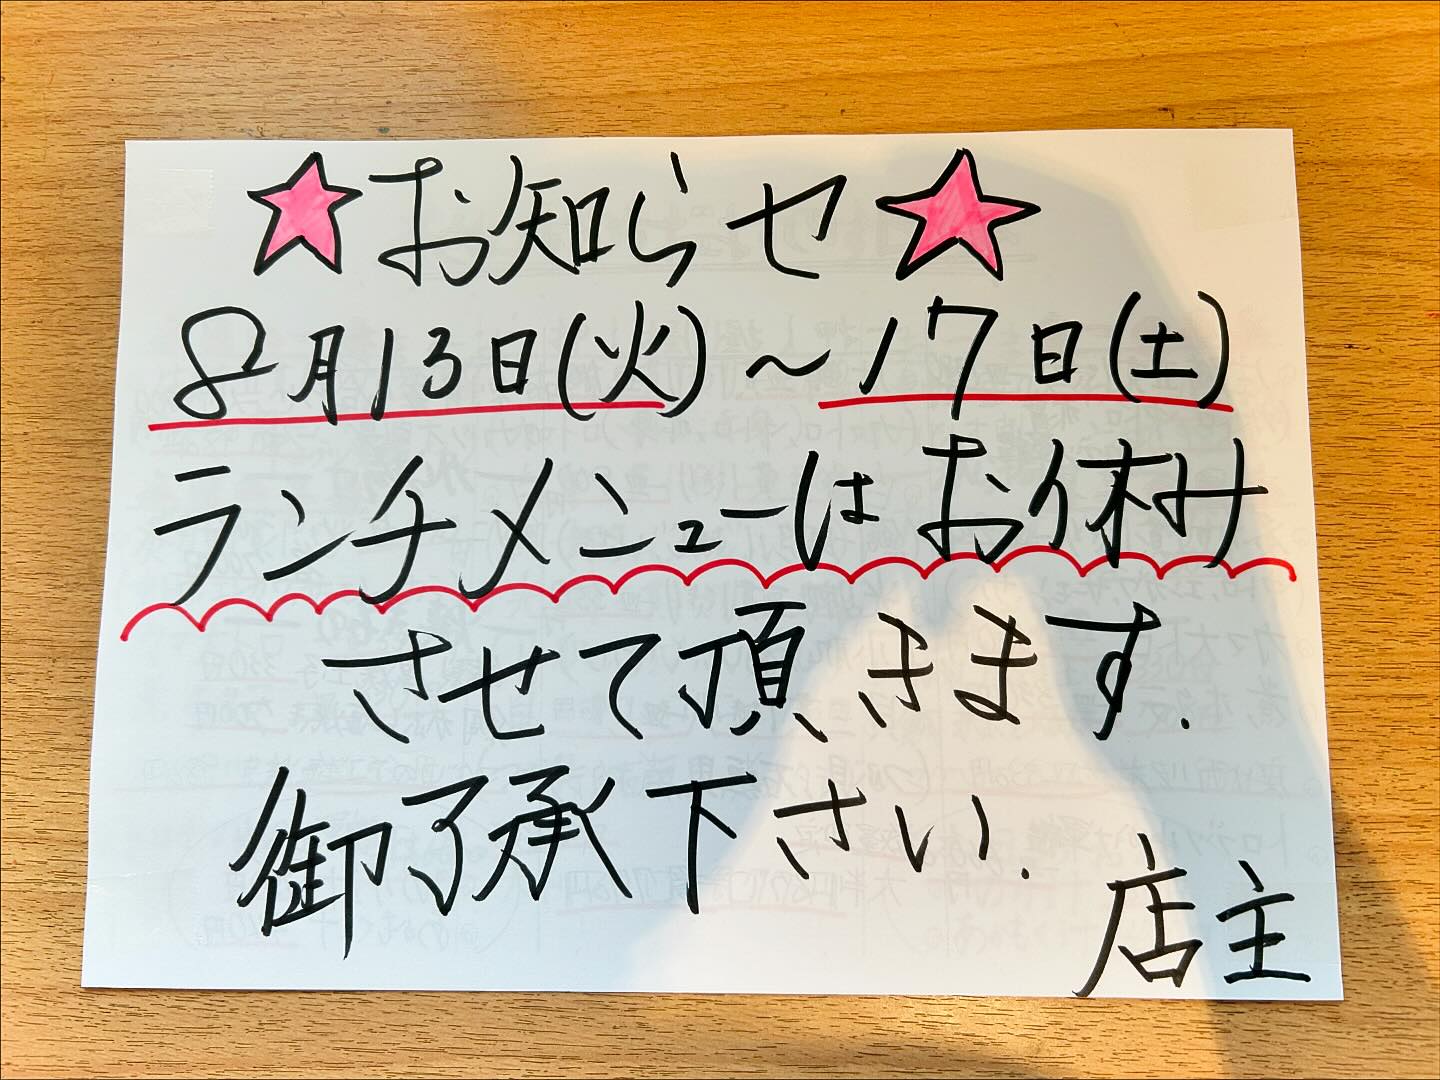 ★お知らせ★
8月13日(火)～17日(土)
ランチメニューはお休み
させて頂きます.
御了承下さい.
店主